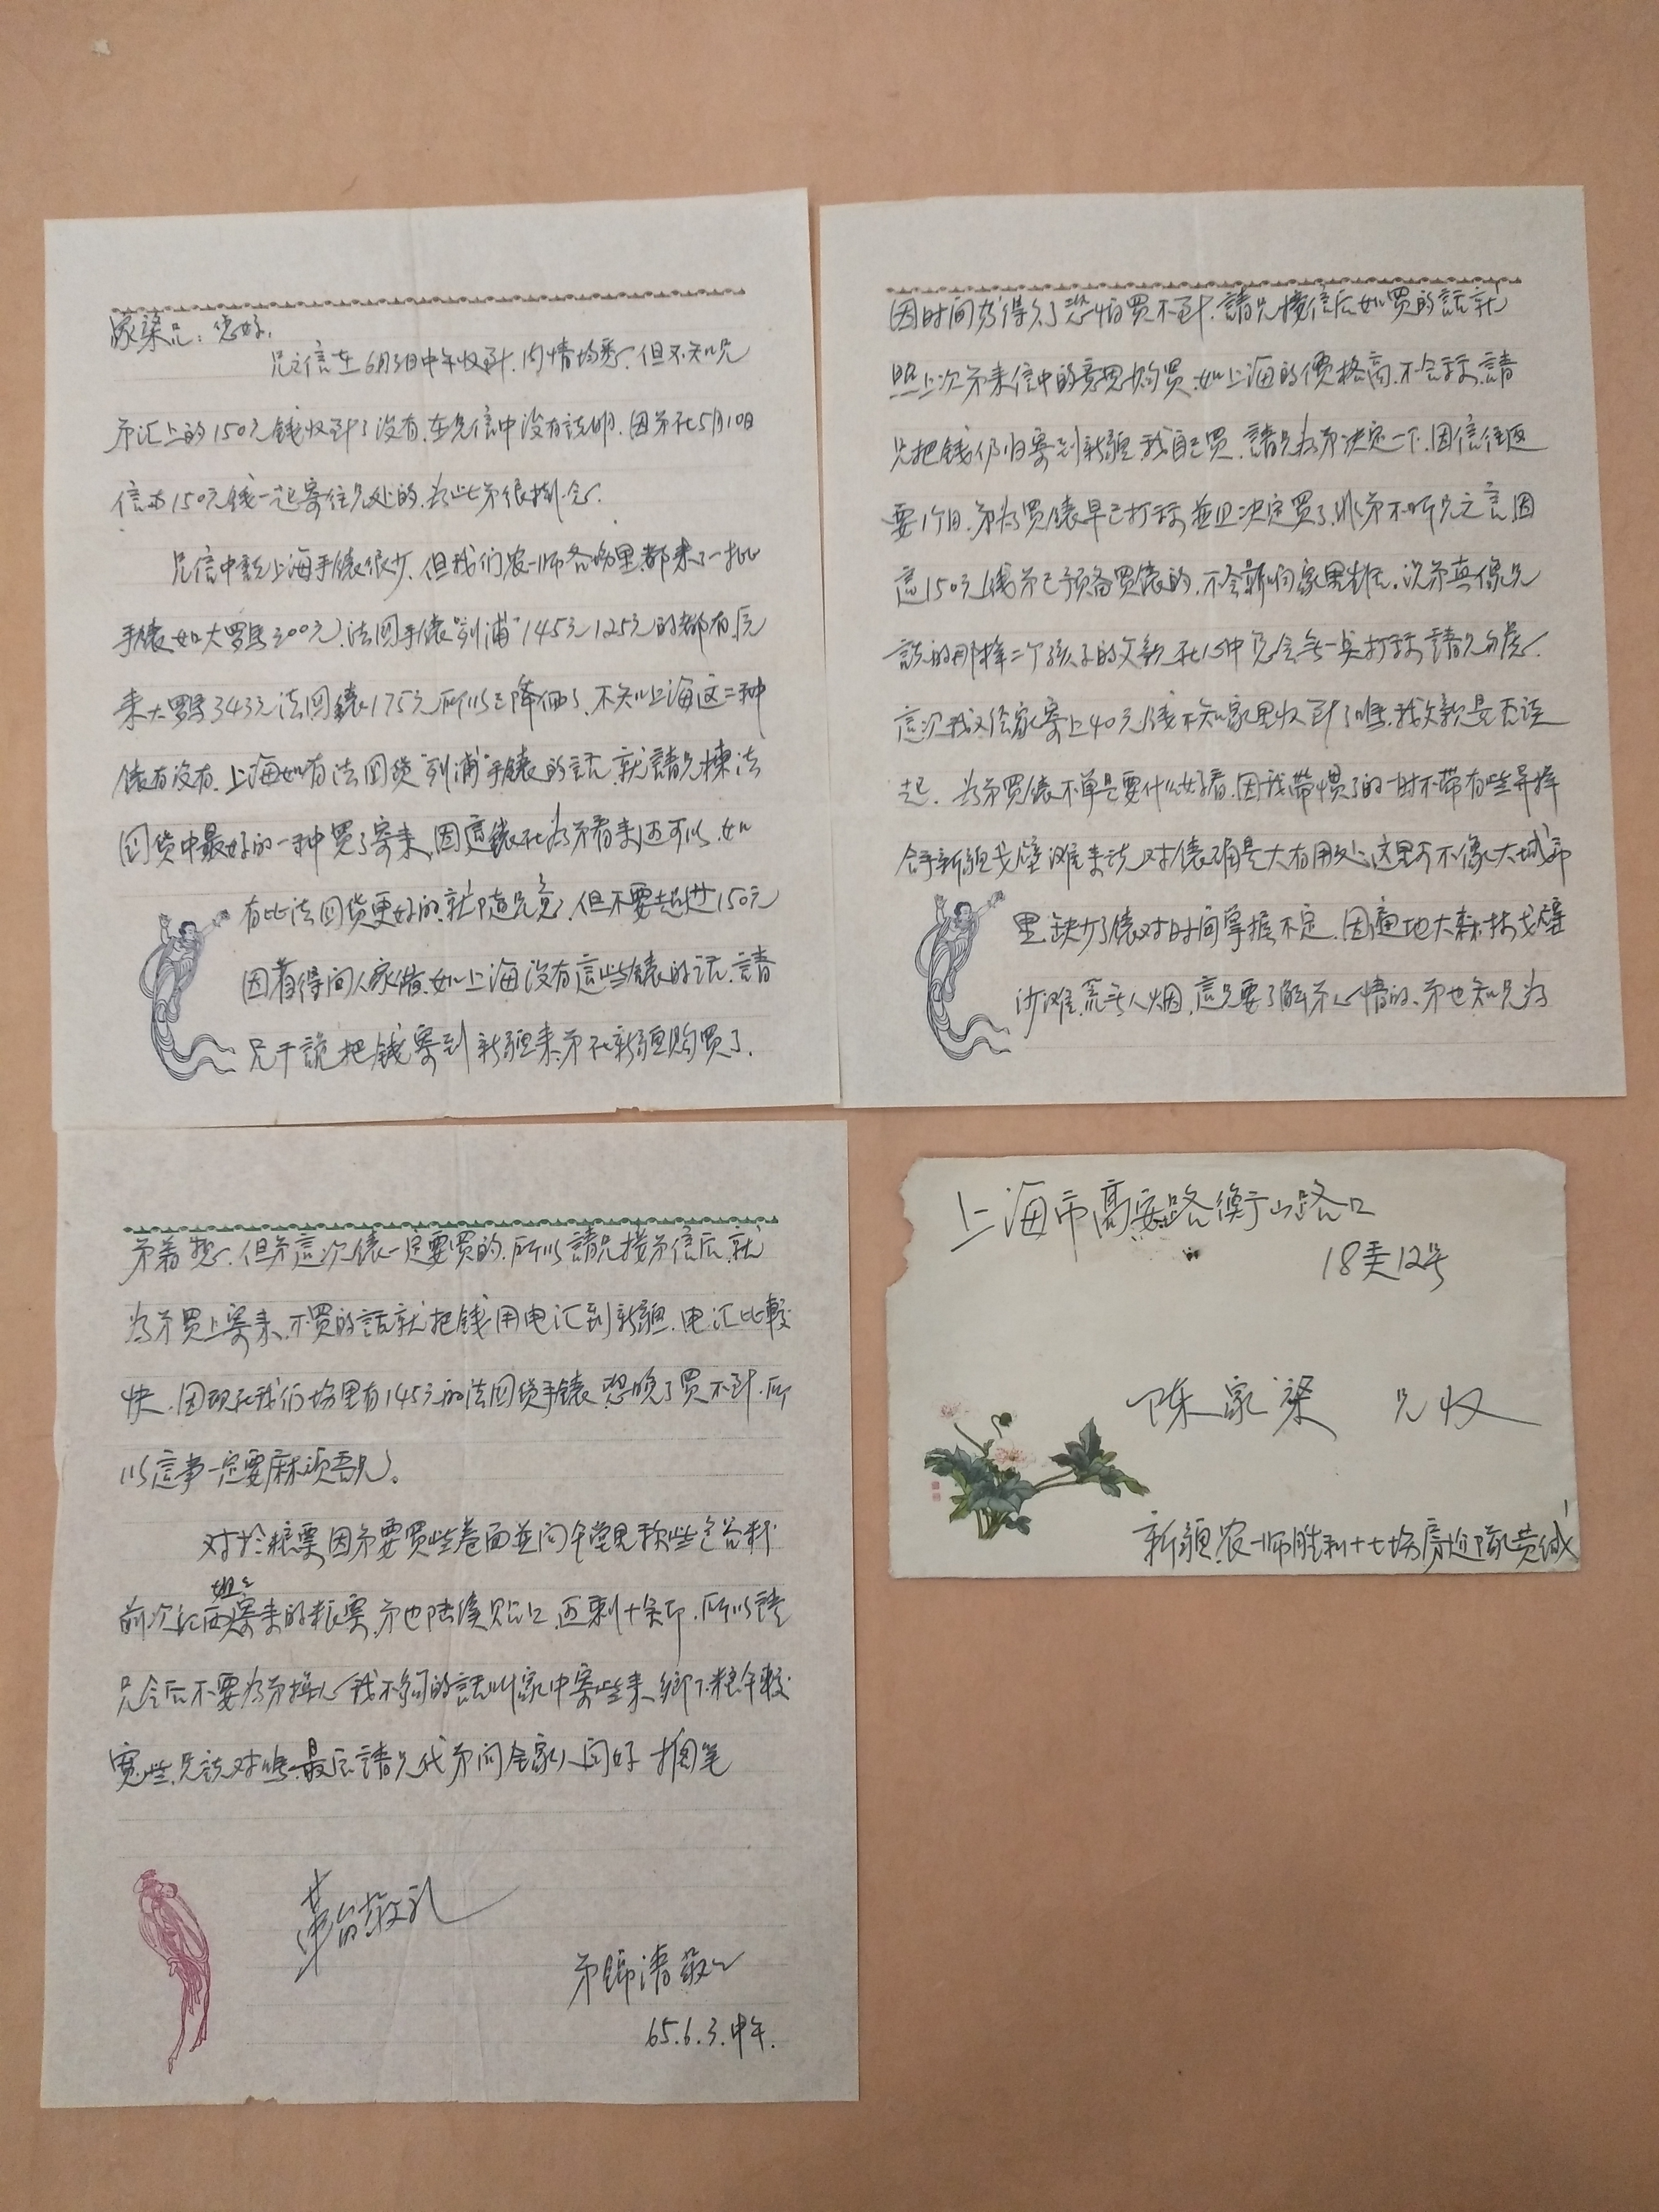 家梁兄：您好，
兄之信在6月3日中午收到，内情均悉，但不知兄
弟汇上的150元錢收到了没有，在兄信中没有説明，因弟在5月10日
信和150元錢一起寄往兄处的，为此弟很掛念。
兄信中説上海手錶很少，但我们农一师各場里都来了一批
手錶如大罗马300元，法囯手錶“列浦”145元125元的都有，原
来大罗马343元法囯錶175元所以已降価了，不知上海这二种
錶有没有，上海如有法囯货“列浦”手錶的话，就請兄揀法
囯货中最好的一种買了寄来，因這錶在为弟看来还可以，如
有比法囯货更好的，就随兄意，但不要超过150元
因省得问人家借，如上海没有這些錶的话，請
兄干脆把錢寄到新疆来，弟在新疆购買了，
因时间拖得久了恐怕買不到，請兄接信后如買的話就
照上次弟来信中的意思购買，如上海的價格高，不合祘，請
兄把錢仍旧寄到新疆，我自己買，請兄为弟决定一下，因信往返
要1个月，弟为買錶早已打祘並且决定買了，非弟不听兄之言，因
這150元錢弟已予备買錶的，不会影响家里生活，况弟真像兄
説的那样二个孩子的父親，在心中冗会无一点打祘，請兄勿虑。
這次我又给家寄上40元錢不知家里收到了嗎，我欠款是否談
起，为弟買錶不单是要什么好看，因我带慣了的一时不带有些异样
含乎新疆戈壁滩来说，对錶确是大有用处，这里可不像大城市
里，缺少了錶对时间掌握不定，因遍地大森林戈壁
沙滩，荒无人烟，這只要了解弟心情的，弟也知兄为
弟着想，但弟這次錶一定要買的，所以請兄接弟信后，就
为弟買上寄来，不買的話就把錢用电汇到新疆，电汇比較
快，因现在我们場里有145元的法囯货手錶，恐晚了買不到，所
以這事一定要麻烦吾兄。
对於粮票因弟要買些卷面並向午堂里称些包谷籽
姐之
前次紅西寄来的粮票，弟也陆续贴口，还剩十余斤，所以請
兄今后不要为弟操心，我不够的話叫家中寄些来，鄉下粮食較
寬些，兄説对嗎，最后請兄代弟问全家人问好 搁笔
革命敬礼
弟錦濤敬上
65.6.3.中午.
上海市高安路衡山路口
18弄12号
陈家梁 兄收
新疆农一师胜利十七場房建隊黄缄